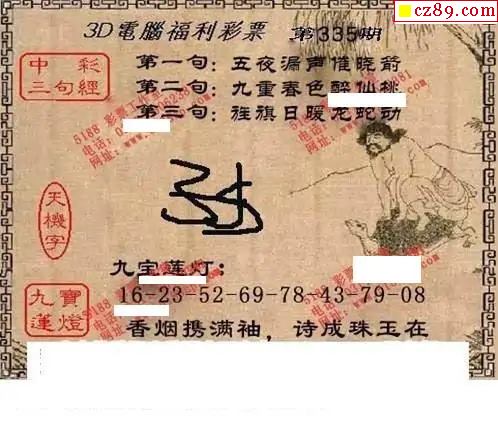 cz89.com
3D電腦福利彩票 第335期
中彩三句經
第一句：五夜漏声催晓箭
第二句：九重春色醉仙桃
第三句：旌旗日暖龙蛇动
天機字
九宝莲灯：
九寶蓮燈
16-23-52-69-78-43-79-08
香烟携满袖，诗成珠玉在